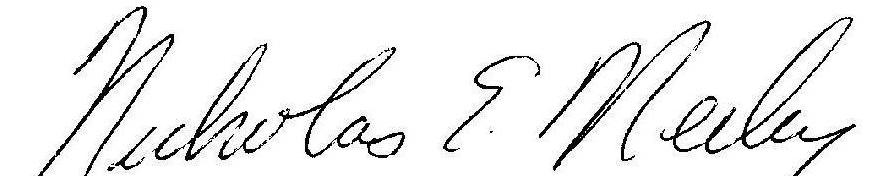 Nicholas E. Neeley